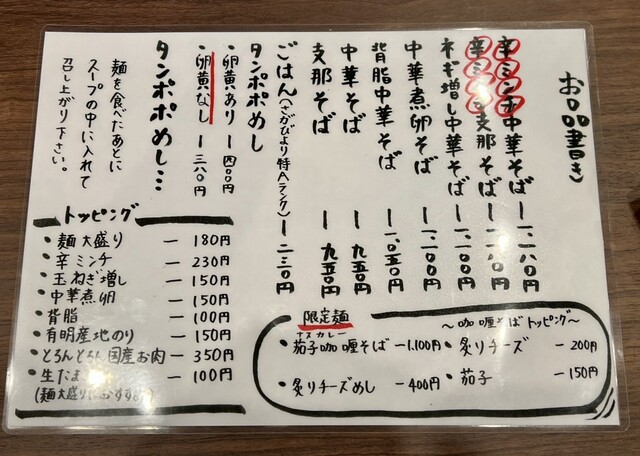 お品書き
辛ミンチ中華そば ー 一、一八〇円
辛ミンチ支那そば ー 一、一八〇円
ネギ増し中華そば ー 一、一〇〇円
中華煮卵そば ー 一、一〇〇円
背脂中華そば ー 一、〇五〇円
中華そば ー 九五〇円
支那そば ー 九五〇円
ごはん(さがびより特Aランク) ー 二三〇円
タンポポめし
・卵黄あり ー 四〇〇円
・卵黄なし ー 三八〇円
タンポポめし…
麺を食べたあとに
スープの中に入れて
召し上がり下さい。
トッピング
・麺大盛り ー 180円
・辛ミンチ ー 230円
・玉ねぎ増し ー 150円
・中華煮卵 ー 150円
・背脂 ー 100円
・有明産地のり ー 150円
・とろんとろん国産お肉 ー 350円
・生たま ー 100円
(麺大盛りにおすす
限定麺
ナスカレー
・茄子咖喱そば ー 1,100円
・炙りチーズめし ー 400円
〜咖喱そばトッピング〜
・炙りチーズ ー 200円
・茄子 ー 150円